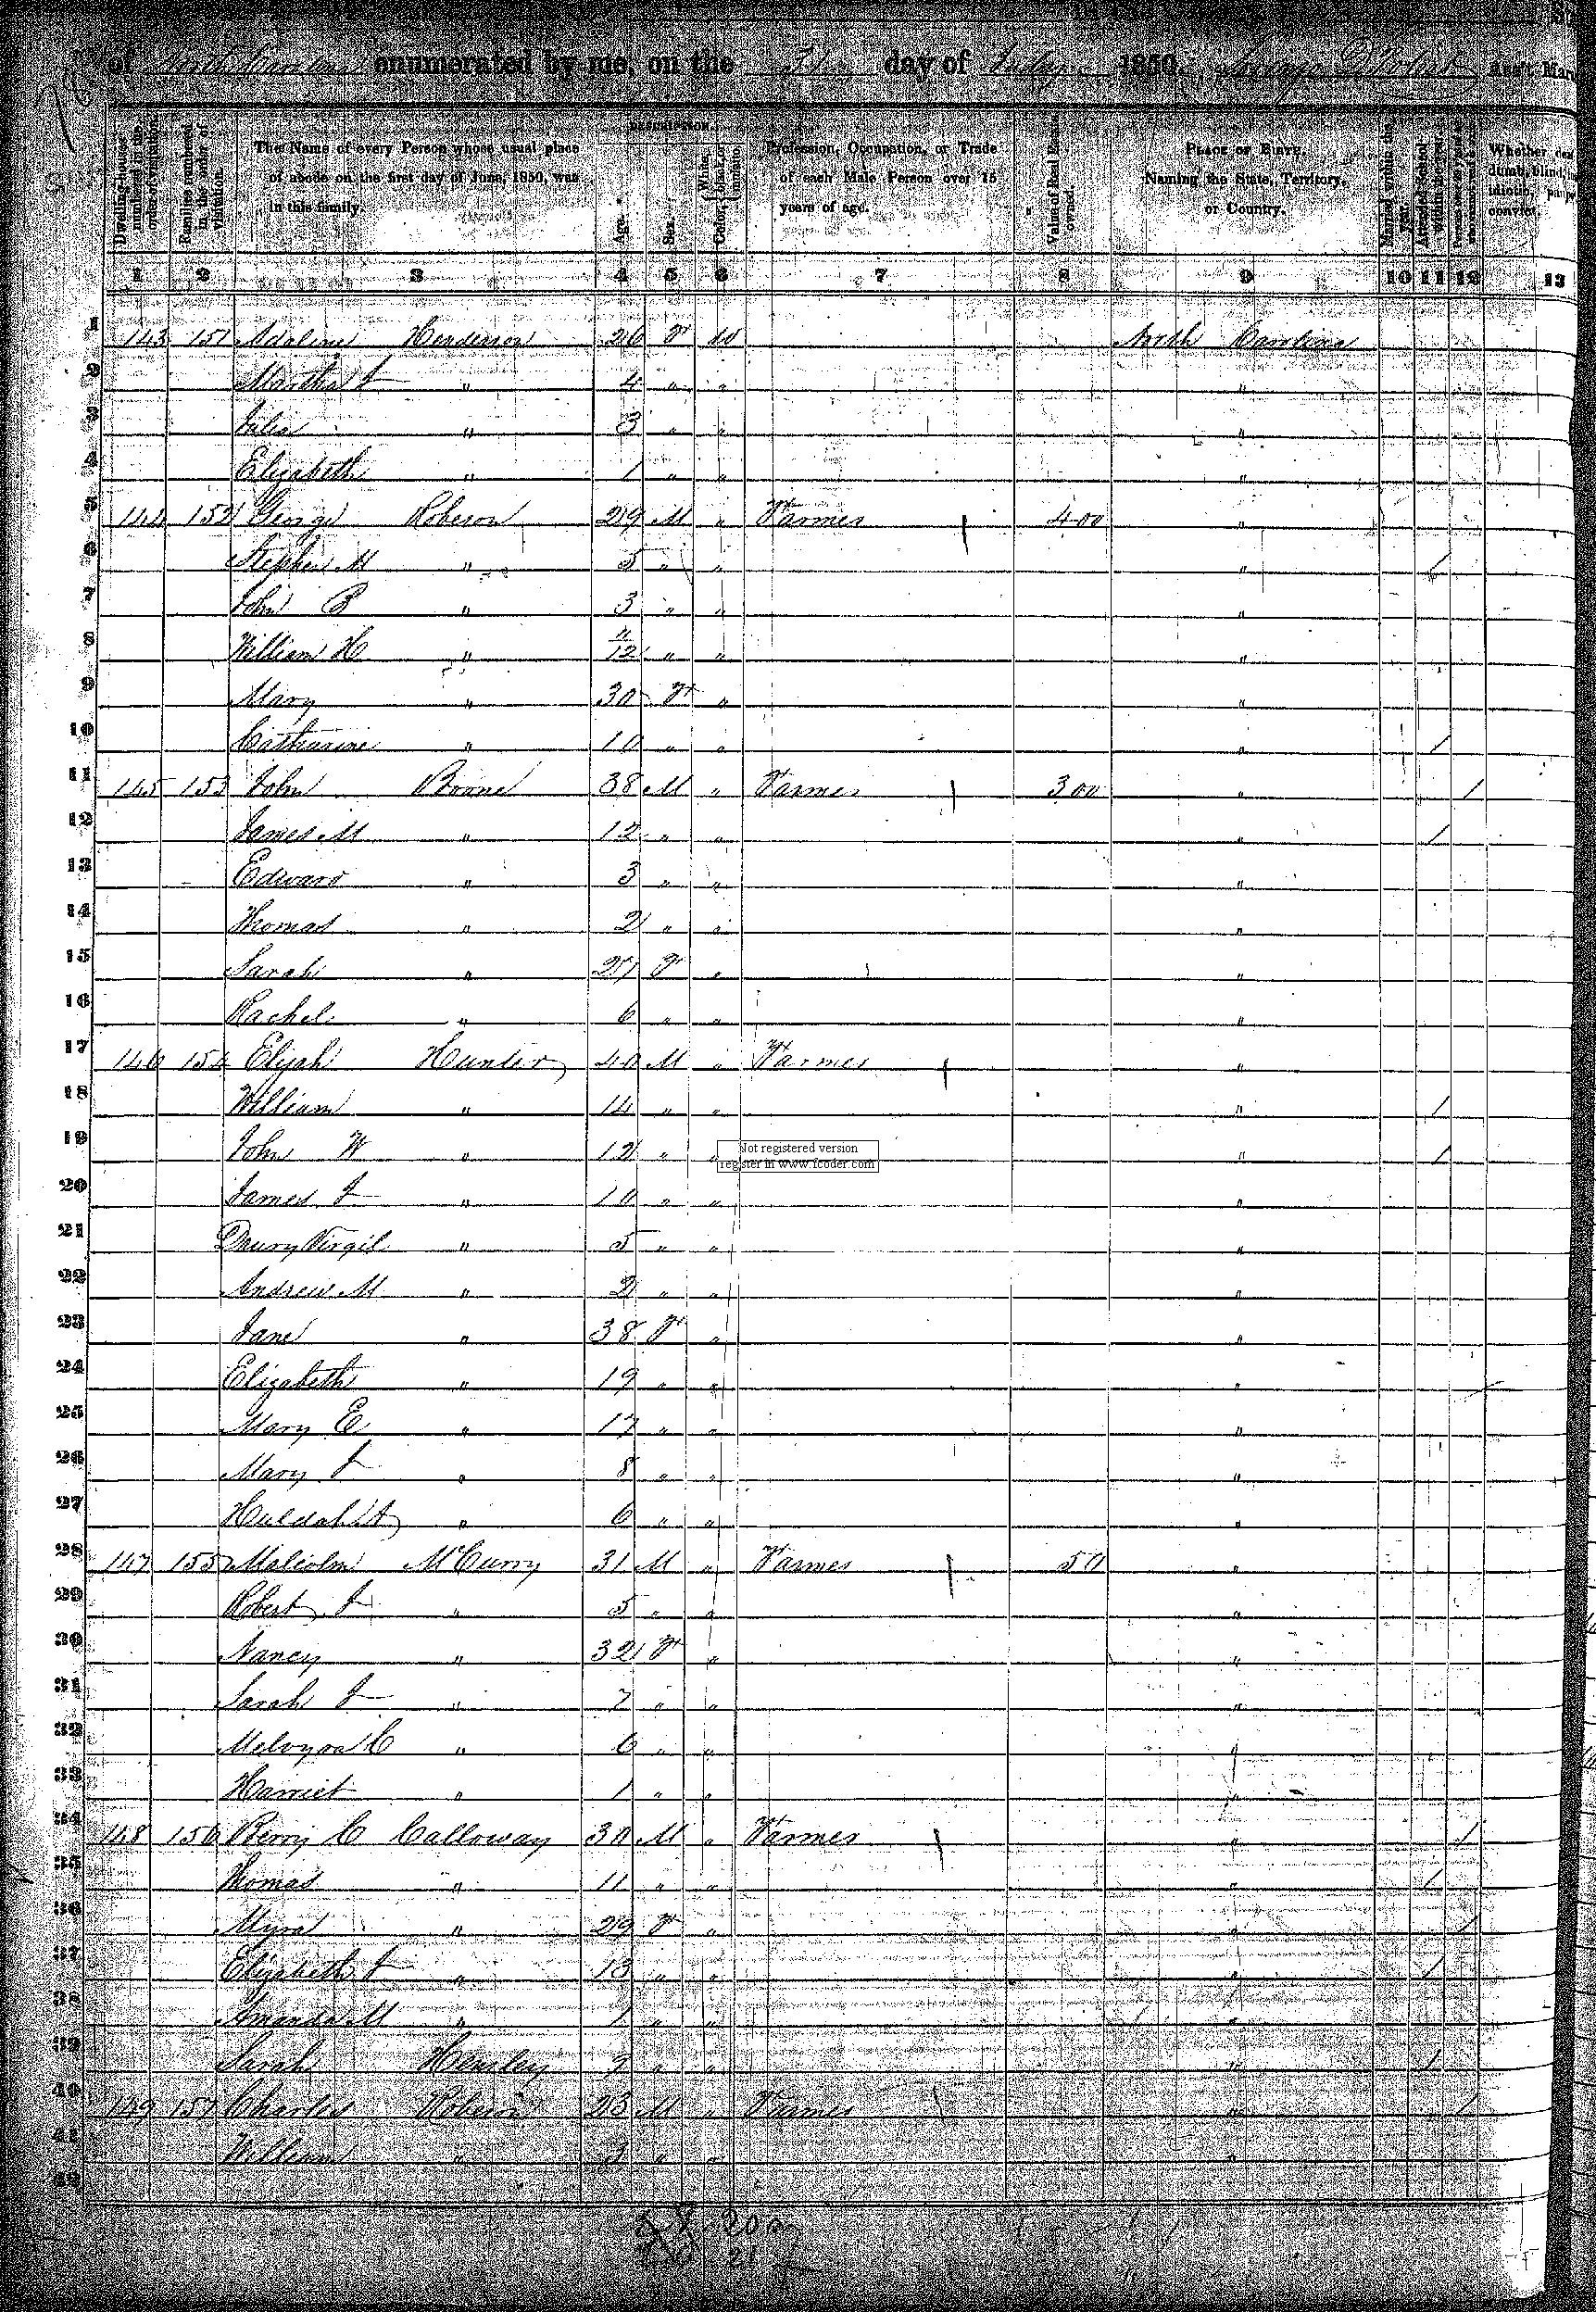 of North Carolina enumerated by me, on the day of 1850. Ass't Mars
Dwelling-houses numbered in the order of visitation.
Families numbered in the order of visitation.
The Name of every Person whose usual place of abode on the first day of June, 1850, was in this family.
DESCRIPTION.
Age.
Sex.
Color, White, black, or mulatto.
Profession, Occupation, or Trade of each Male Person over 15 years of age.
Value of Real Estate owned.
PLACE OF BIRTH.
Naming the State, Territory, or Country.
Married within the year.
Attended School within the year.
Whether deaf dumb, blind, idiotic, convict.
1 2 3 4 5 6 7 8 9 10 11 12 13
1 143 151 Adaline Henderson 26 F W North Carolina
2 Martha J " 4 " " "
3 Julia " 3 " " "
4 Elizabeth " 1 " " "
5 144 152 George Roberson 29 M " Farmer 400 "
6 Stephen M " 5 " " " /
7 John B " 3 " " "
8 William H " 11/12 " " "
9 Mary " 30 F " "
10 Catharine " 10 " " " /
11 145 153 John Boone 38 M " Farmer 300 " /
12 James M " 12 " " " /
13 Edward " 3 " " "
14 Thomas " 2 " " "
15 Sarah " 27 F " "
16 Rachel " 6 " " "
17 146 154 Elijah Hunter 40 M " Farmer "
18 William " 14 " " " /
19 John W " 12 " " " /
Not registered version
register in www.fcoder.com
20 James J " 10 " " "
21 Drury Virgil " 5 " " "
22 Andrew M " 2 " " "
23 Jane " 38 F " "
24 Elizabeth " 19 " " "
25 Mary E " 17 " " "
26 Mary J " 8 " " "
27 Huldah A " 6 " " "
28 147 155 Malcolm McCurry 31 M " Farmer 50 "
29 Robert J " 5 " " "
30 Nancy " 32 F " "
31 Sarah J " 7 " " "
32 Melvyra C " 6 " " "
33 Harriet " 1 " " "
34 148 156 Berry C Calloway 30 M " Farmer " /
35 Thomas " 11 " " " /
36 Myra " 29 F " " /
37 Elizabeth J " 13 " " " /
38 Amanda M " 1 " " "
39 Sarah Hensley 9 " " " /
40 149 157 Charles Roberson 23 M " Farmer " /
41 William " 3 " " "
42